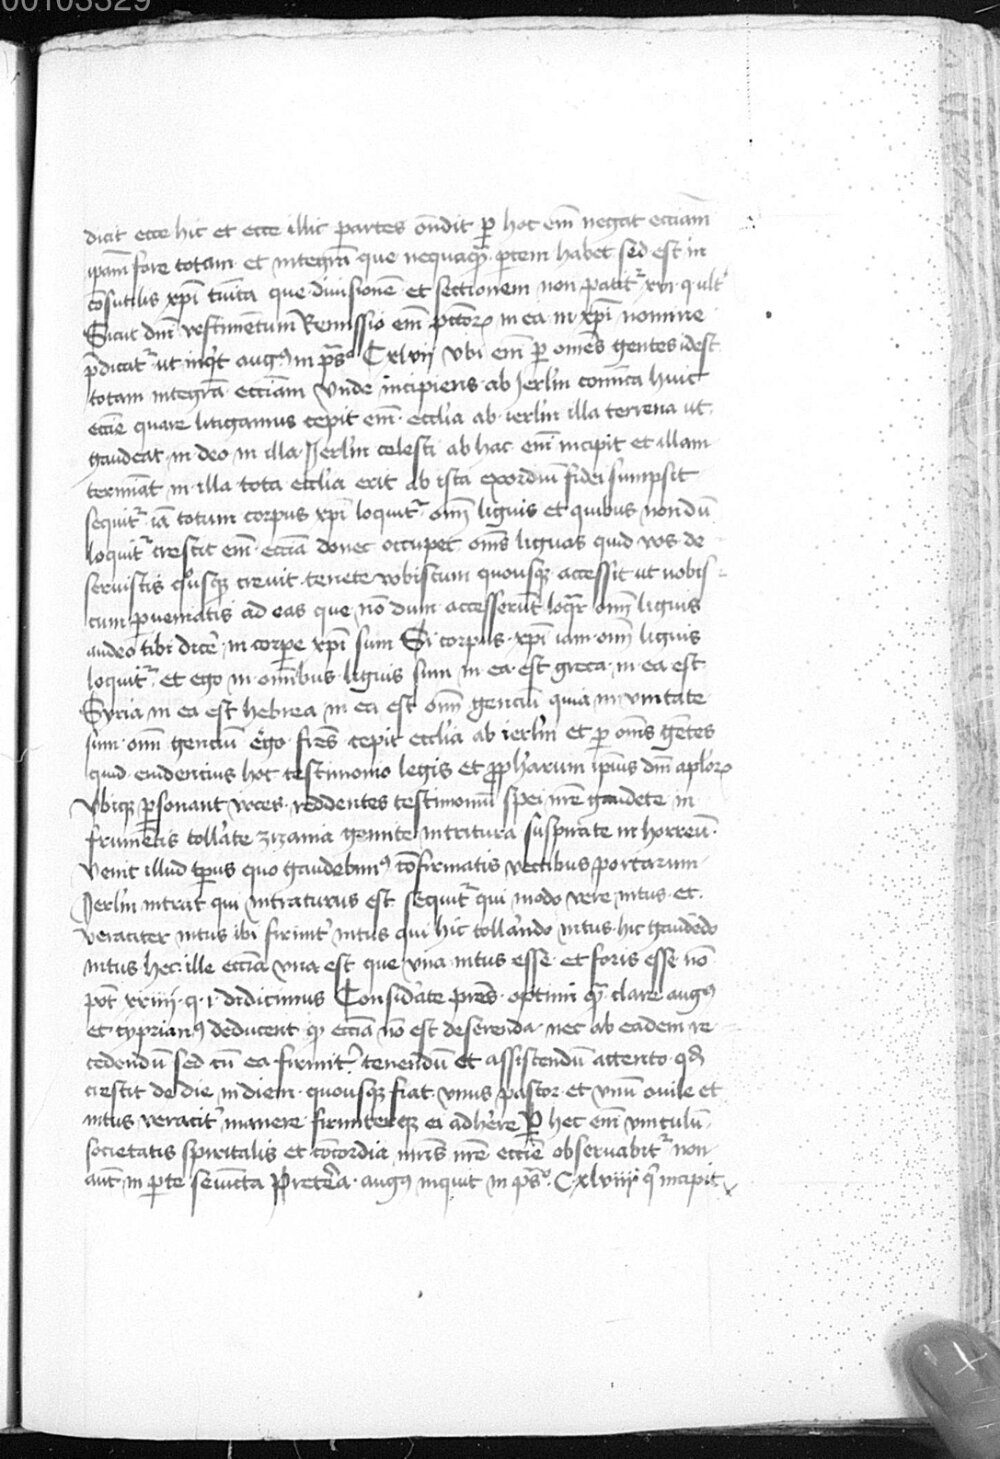 00103329
dicit ecce hic et ecce illic partes ondit p hoc em negat ecciam
ipam fore totam et integra que nequaqȝ ptem habet sed est in
cosutilis xpi tunica que divisione et sectionem non patit xvi q ult
Sicut dni vestimentum Remissio em pctoȝ in ea in xpi nomine
pdicat ut inqt augꝰ in ps Cxlvii ubi em p omes gentes idest
totam integra ecciam Unde incipiens ab Jerlm comuca huic
eccie quare litigamus cepit em ecclia ab ierlm illa terrena ut
gaudeat in deo in illa Jerlm celesti ab hac em incipit et illam
terminat in illa tota ecclia erit ab ista exordiu fidei sumpsit
sequit ia totum corpus xpi loquit oim liguis et quibus nondu
loquit crescit em eccia donec occupet oms liguas quid vos de
seruistis quousqȝ crevit tenete vobiscum quousqȝ accessit ut nobis
cum pueniatis ad eas que no dum accesserut loqr oim liguis
audeo tibi dice in corpe xpi sum Si corpus xpi iam oim liguis
loquit et ego in omibus liguis sum in ea est greca in ea est
Syria in ea est hebrea in ea est oim genciu quia in unitate
sum oim genciu Ergo fres cepit ecclia ab ierlm et p oms getes
quid euidencius hoc testimonio legis et ppharum ipius dni aploȝ
Ubiqȝ psonant voces reddentes testimoniu spei nre gaudete in
frumetis tollate zizania gemite in tritura suspirate in horreu
Veniet illud tpus quo gaudebimꝰ cofirmatis vectibus portarum
Jerlm intrat qui intraturus est sequit qui modo vere intus et
veraciter intus ibi firmit intus qui hic tollando intus hic gaudedo
intus hec ille eccia una est que una intus esse et foris esse no
pot xxiiii q i didicimus Considate pres optimi q clare augꝰ
et cyprianꝰ deducent q eccia no est deserenda nec ab eadem re
cedendu sed cu ea firmit tenendu et assistendu attento qd
crescit de die in diem quousqȝ fiat unus pastor et unu ovile et
intus veracit manere firmiterqȝ ei adhere p hec em vinculu
societatis spiritalis et cocordia nris nre eccie observabit non
aut in pte seiucta Preterea augꝰ inquit in ps Cxlviiii q incipit